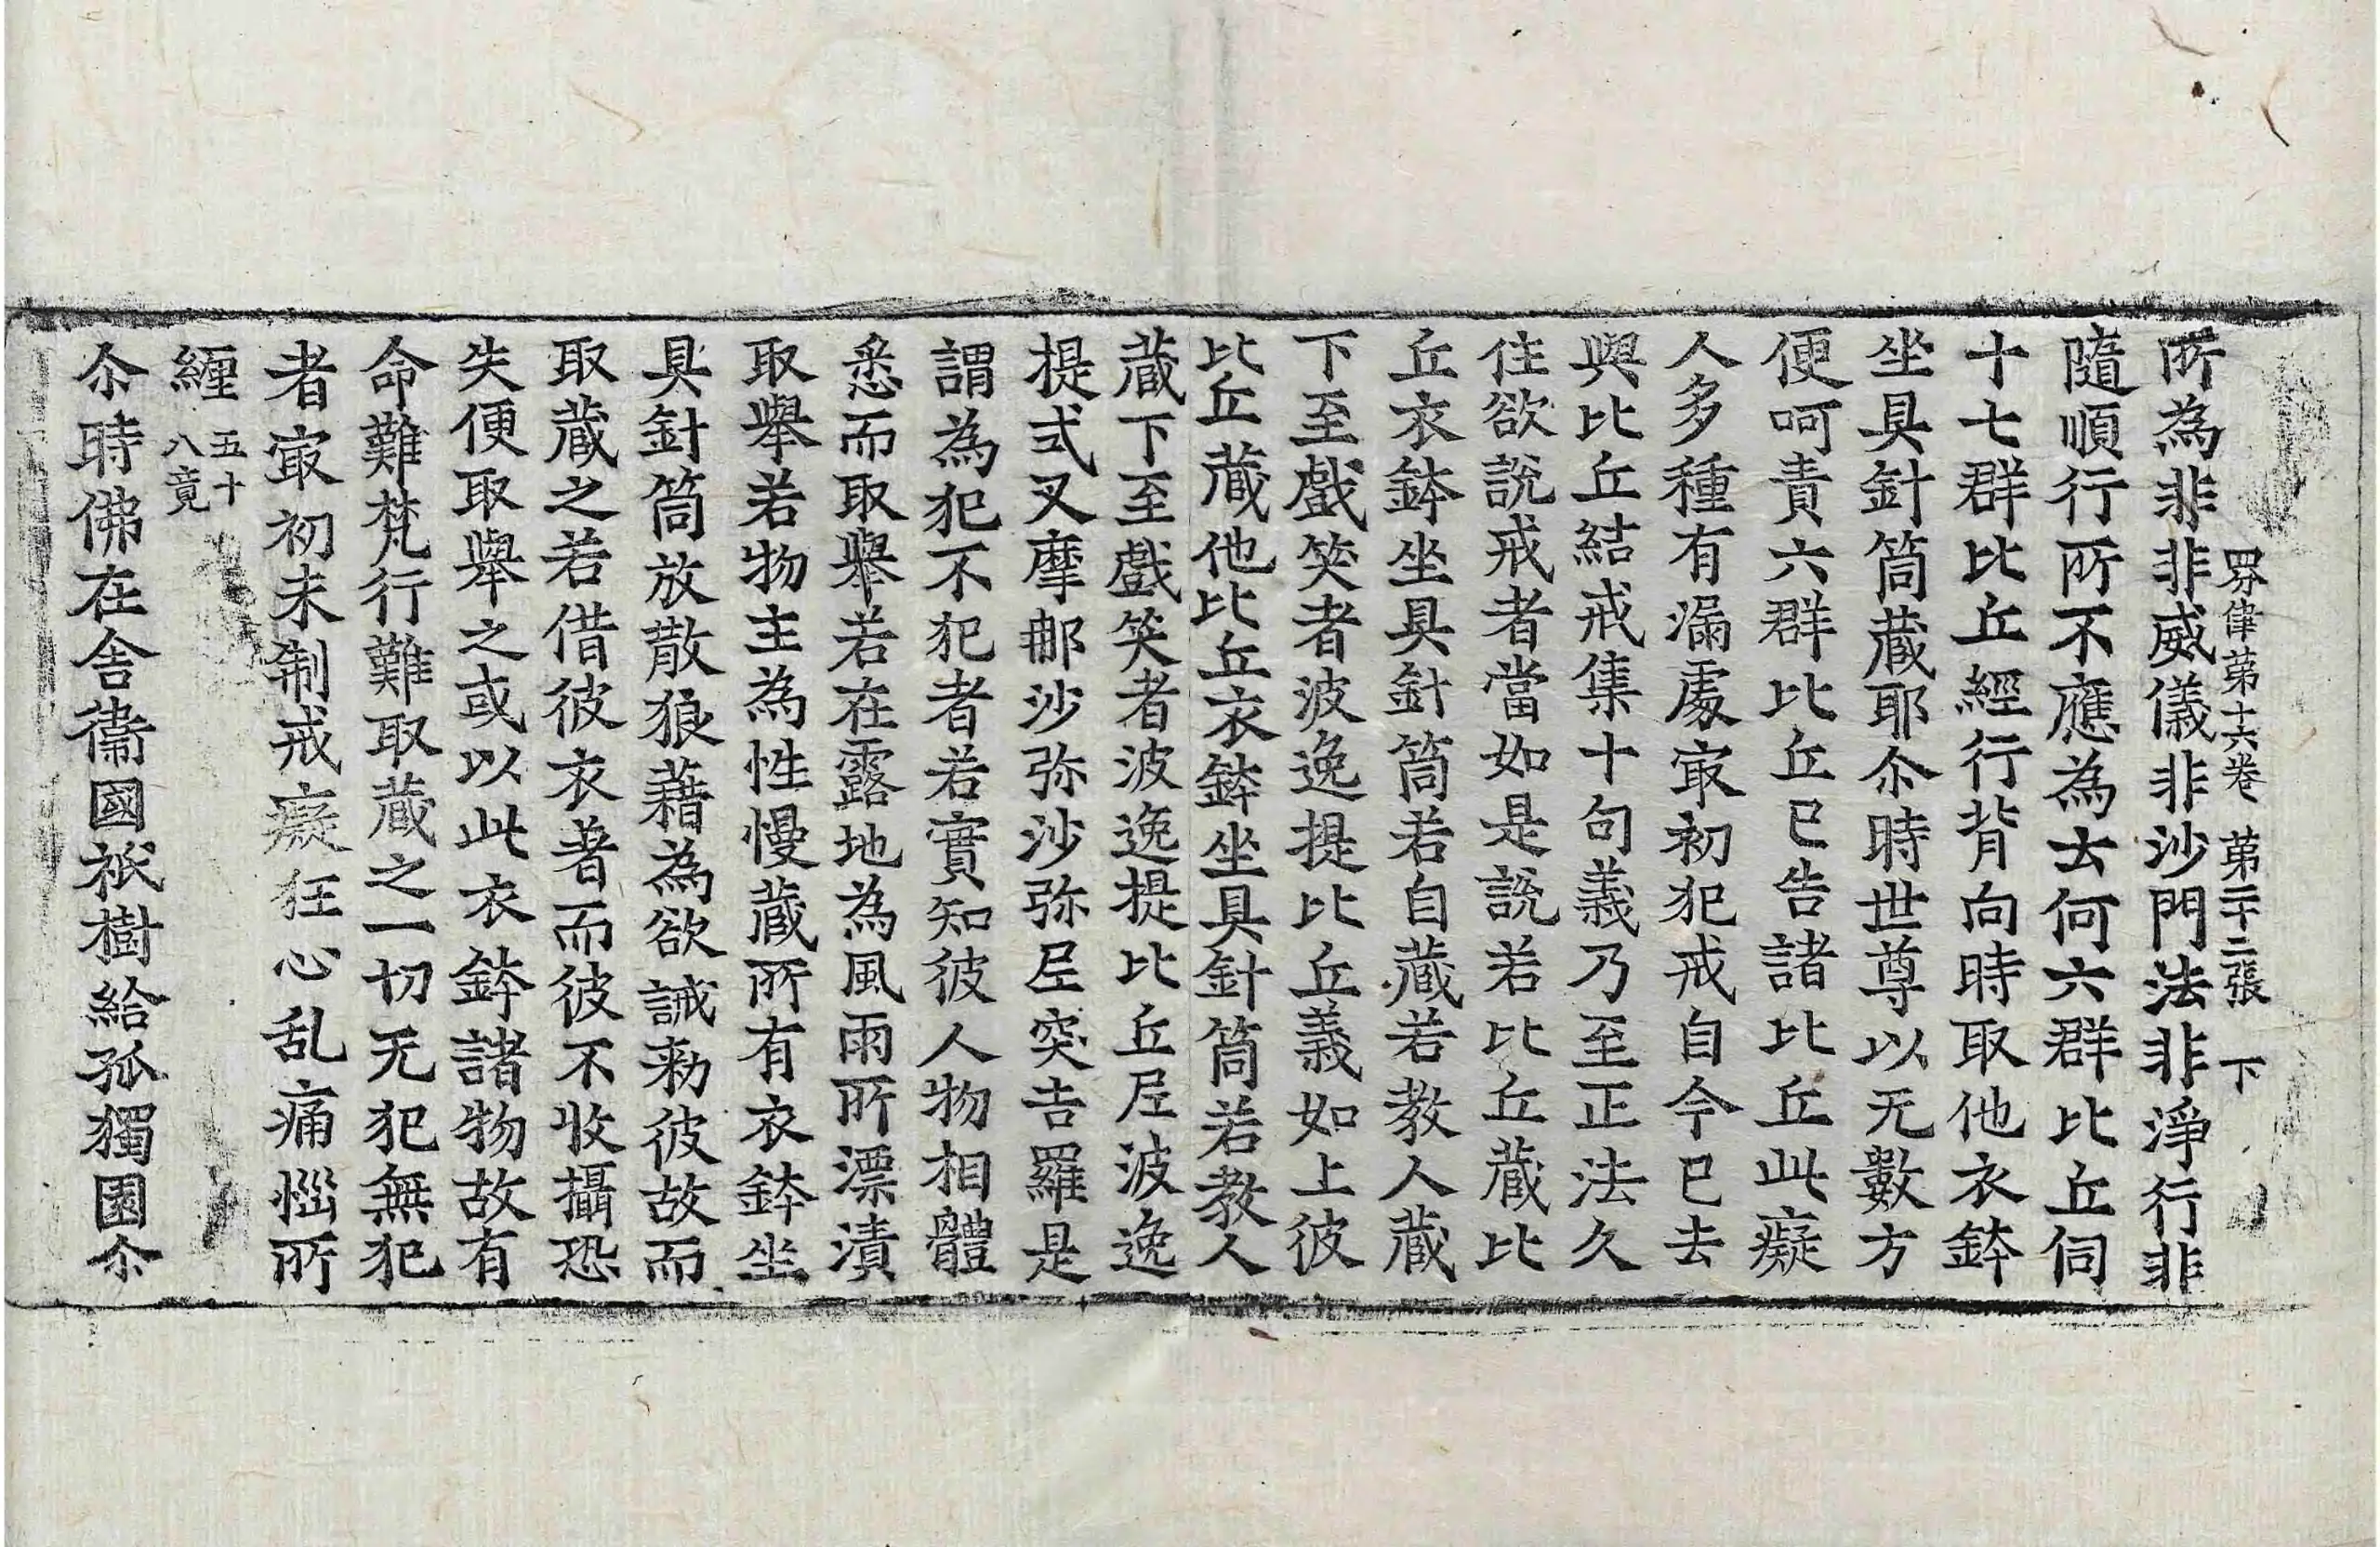 四分律第十六卷 第二十二張 下
所為非非威儀非沙門法非淨行非
隨順行所不應為云何六群比丘伺
十七群比丘經行背向時取他衣鉢
坐具針筒蔵耶尒時世尊以无數方
便呵責六群比丘已告諸比丘此癡
人多種有漏處㝡初犯戒自今已去
與比丘結戒集十句義乃至正法久
住欲說戒者當如是說若比丘蔵比
丘衣鉢坐具針筒若自蔵若教人蔵
下至戲笑者波逸提比丘義如上彼
比丘蔵他比丘衣鉢坐具針筒若教人
蔵下至戲笑者波逸提比丘尼波逸
提式叉摩那沙弥沙弥尼突吉羅是
謂為犯不犯者若實知彼人物相體
悉而取舉若在露地為風雨所漂漬
取舉若物主為性慢蔵所有衣鉢坐
具針筒放散狼藉為欲誡勑彼故而
取蔵之若借彼衣著而彼不收攝恐
失便取舉之或以此衣鉢諸物故有
命難梵行難取蔵之一切无犯無犯
者㝡初未制戒癡狂心乱痛惱所
纏 五十八竟
尒時佛在舍衞國祇樹給孤獨園尒